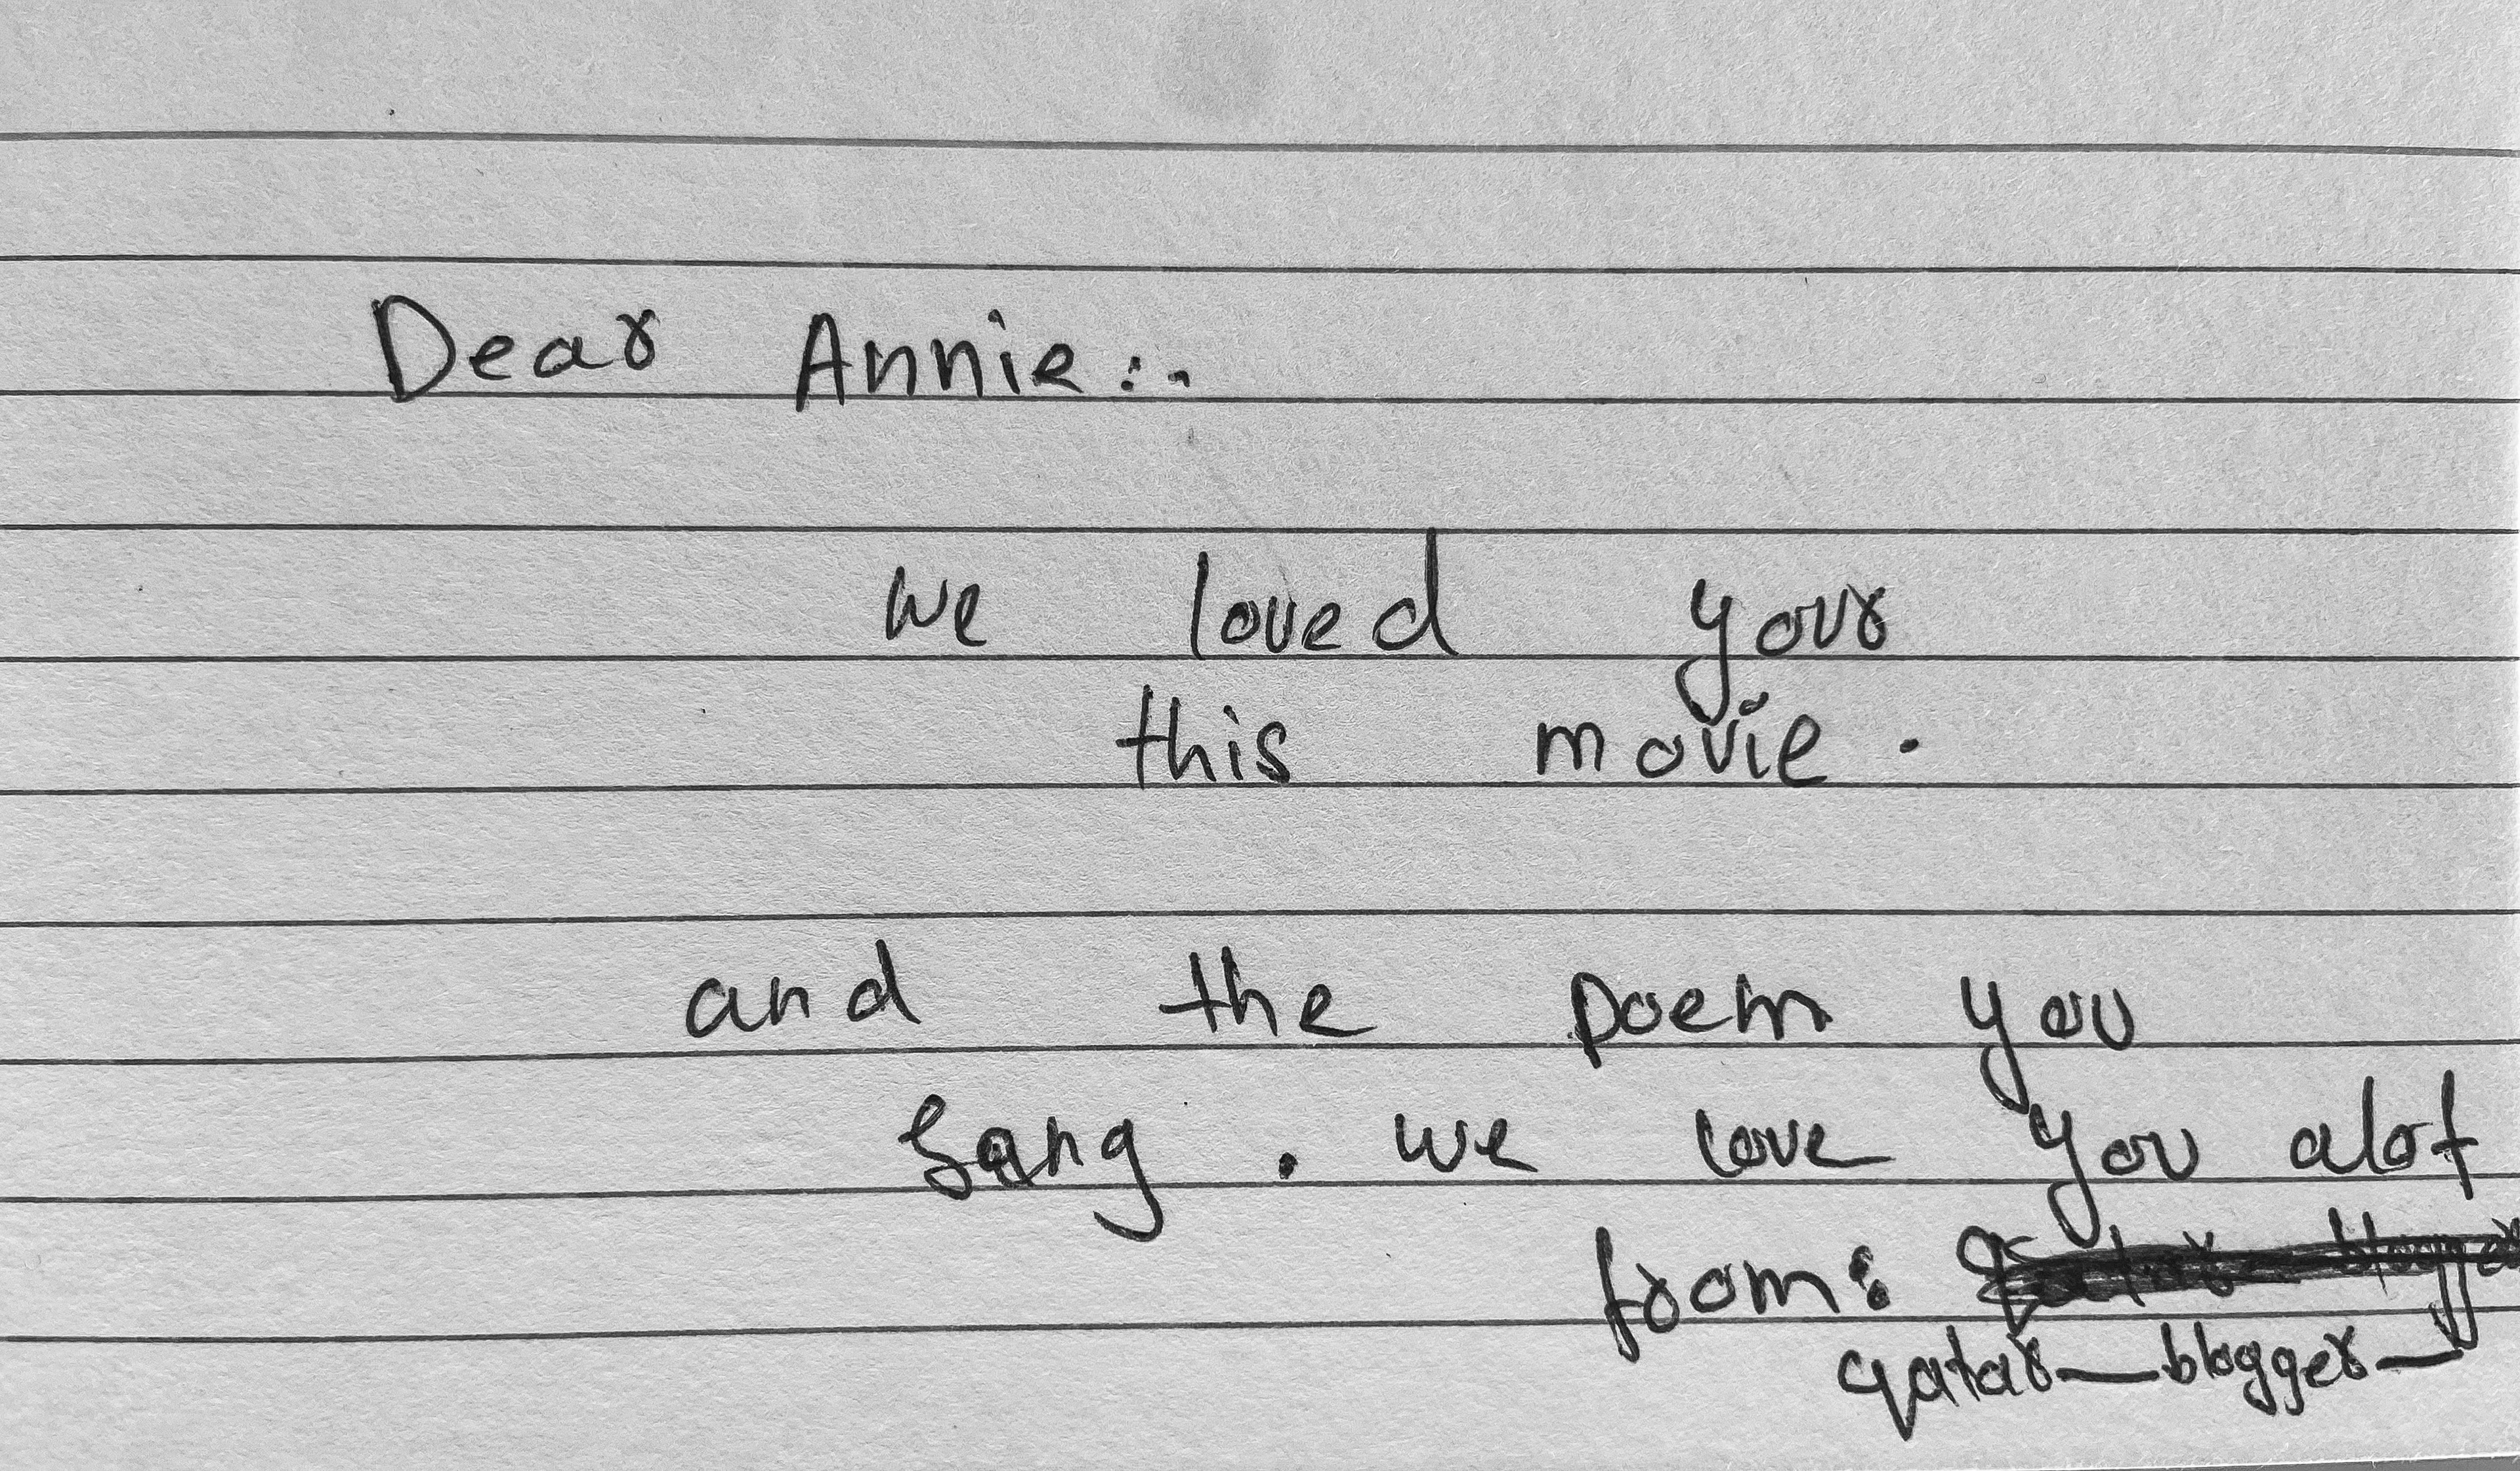 Dear Annie:-
we loved your
this movie.
and the poem you
sang. we love you alot
from:
qatar_blogger_